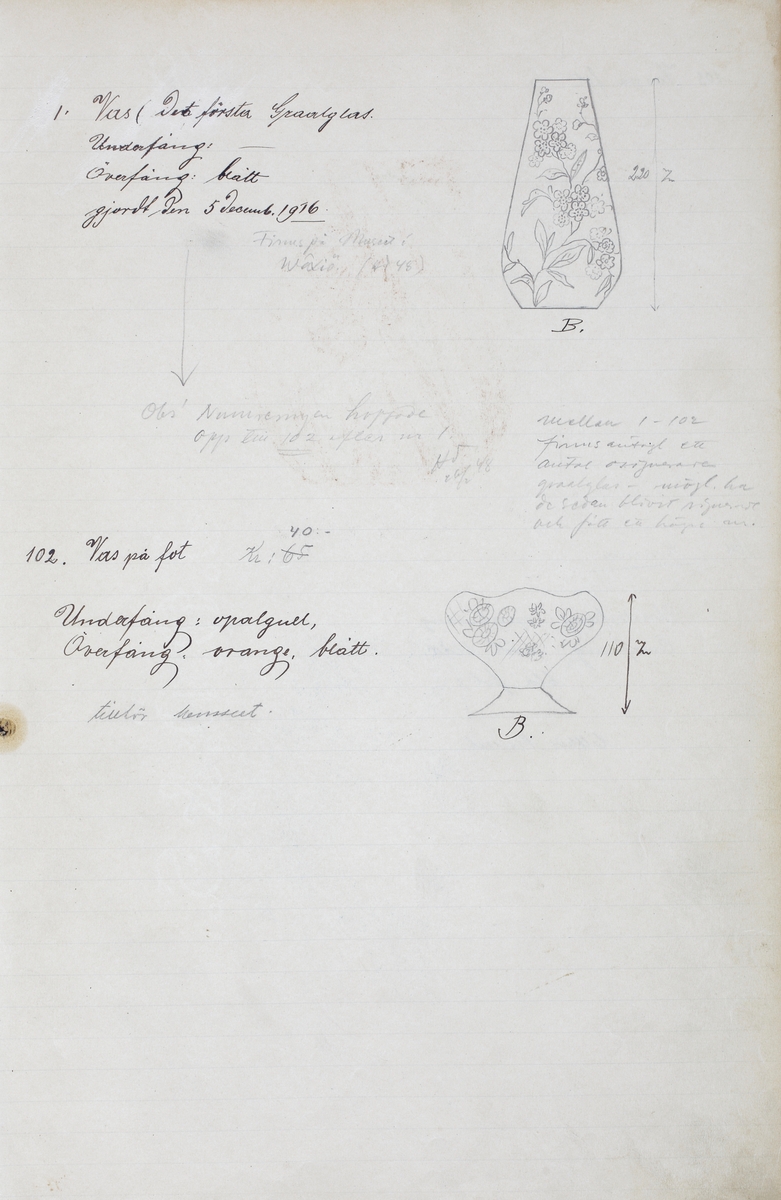 1. Vas ( Det första Graalglas.
Underfång: —
Överfång: blått
gjordt den 5 decemb. 1916.
Finns på Museet i
Wäxiö, ( 48)
220 %
B.
Obs! Numreringen hoppade
opp till 102 efter nr 1.
48
mellan 1 - 102
finns antagl ett
antal osignerade
graalglas – mögl. ha
de sedan blivit signerade
och fått en högre nr.
40:-
102. Vas på fot Kr: 65
Underfång: opalgull,
Överfång: orange, blått.
110 %
B.
tillhör museet.